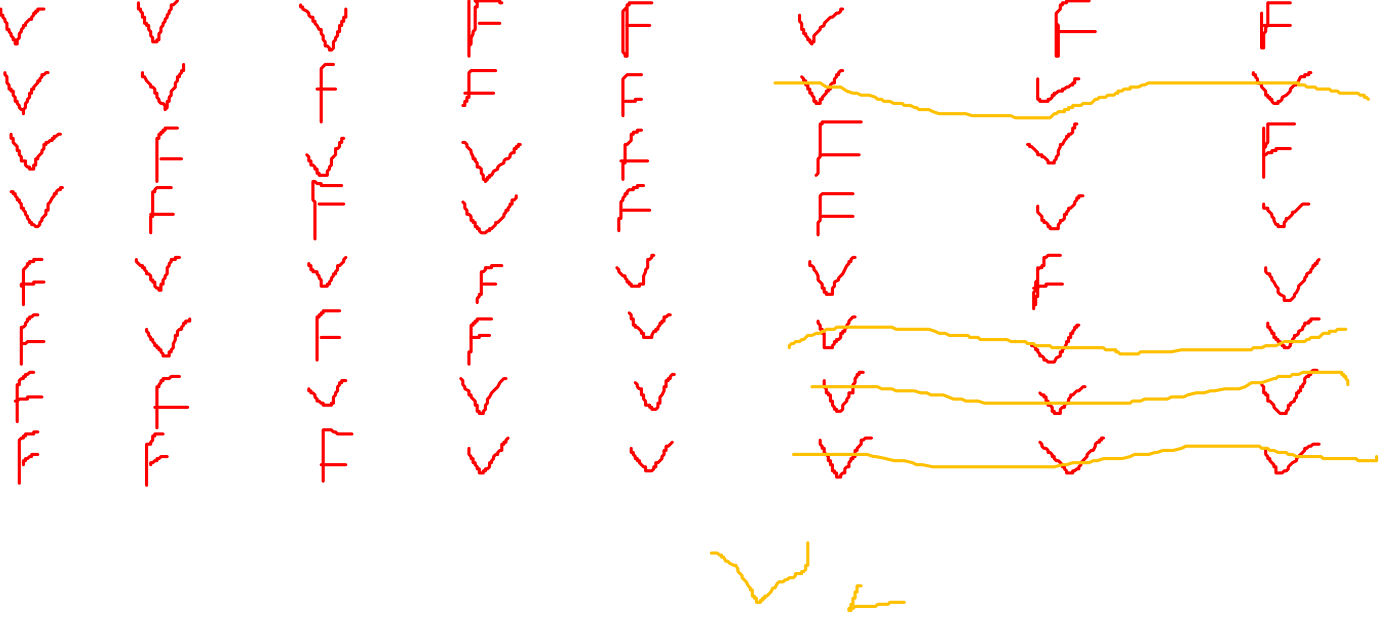 V V V F F V F F
V V F F F V V V
V F V V F F V F
V F F V F F V V
F V V F V V F V
F V F F V V V V
F F V V V V V V
F F F V V V V V
V L